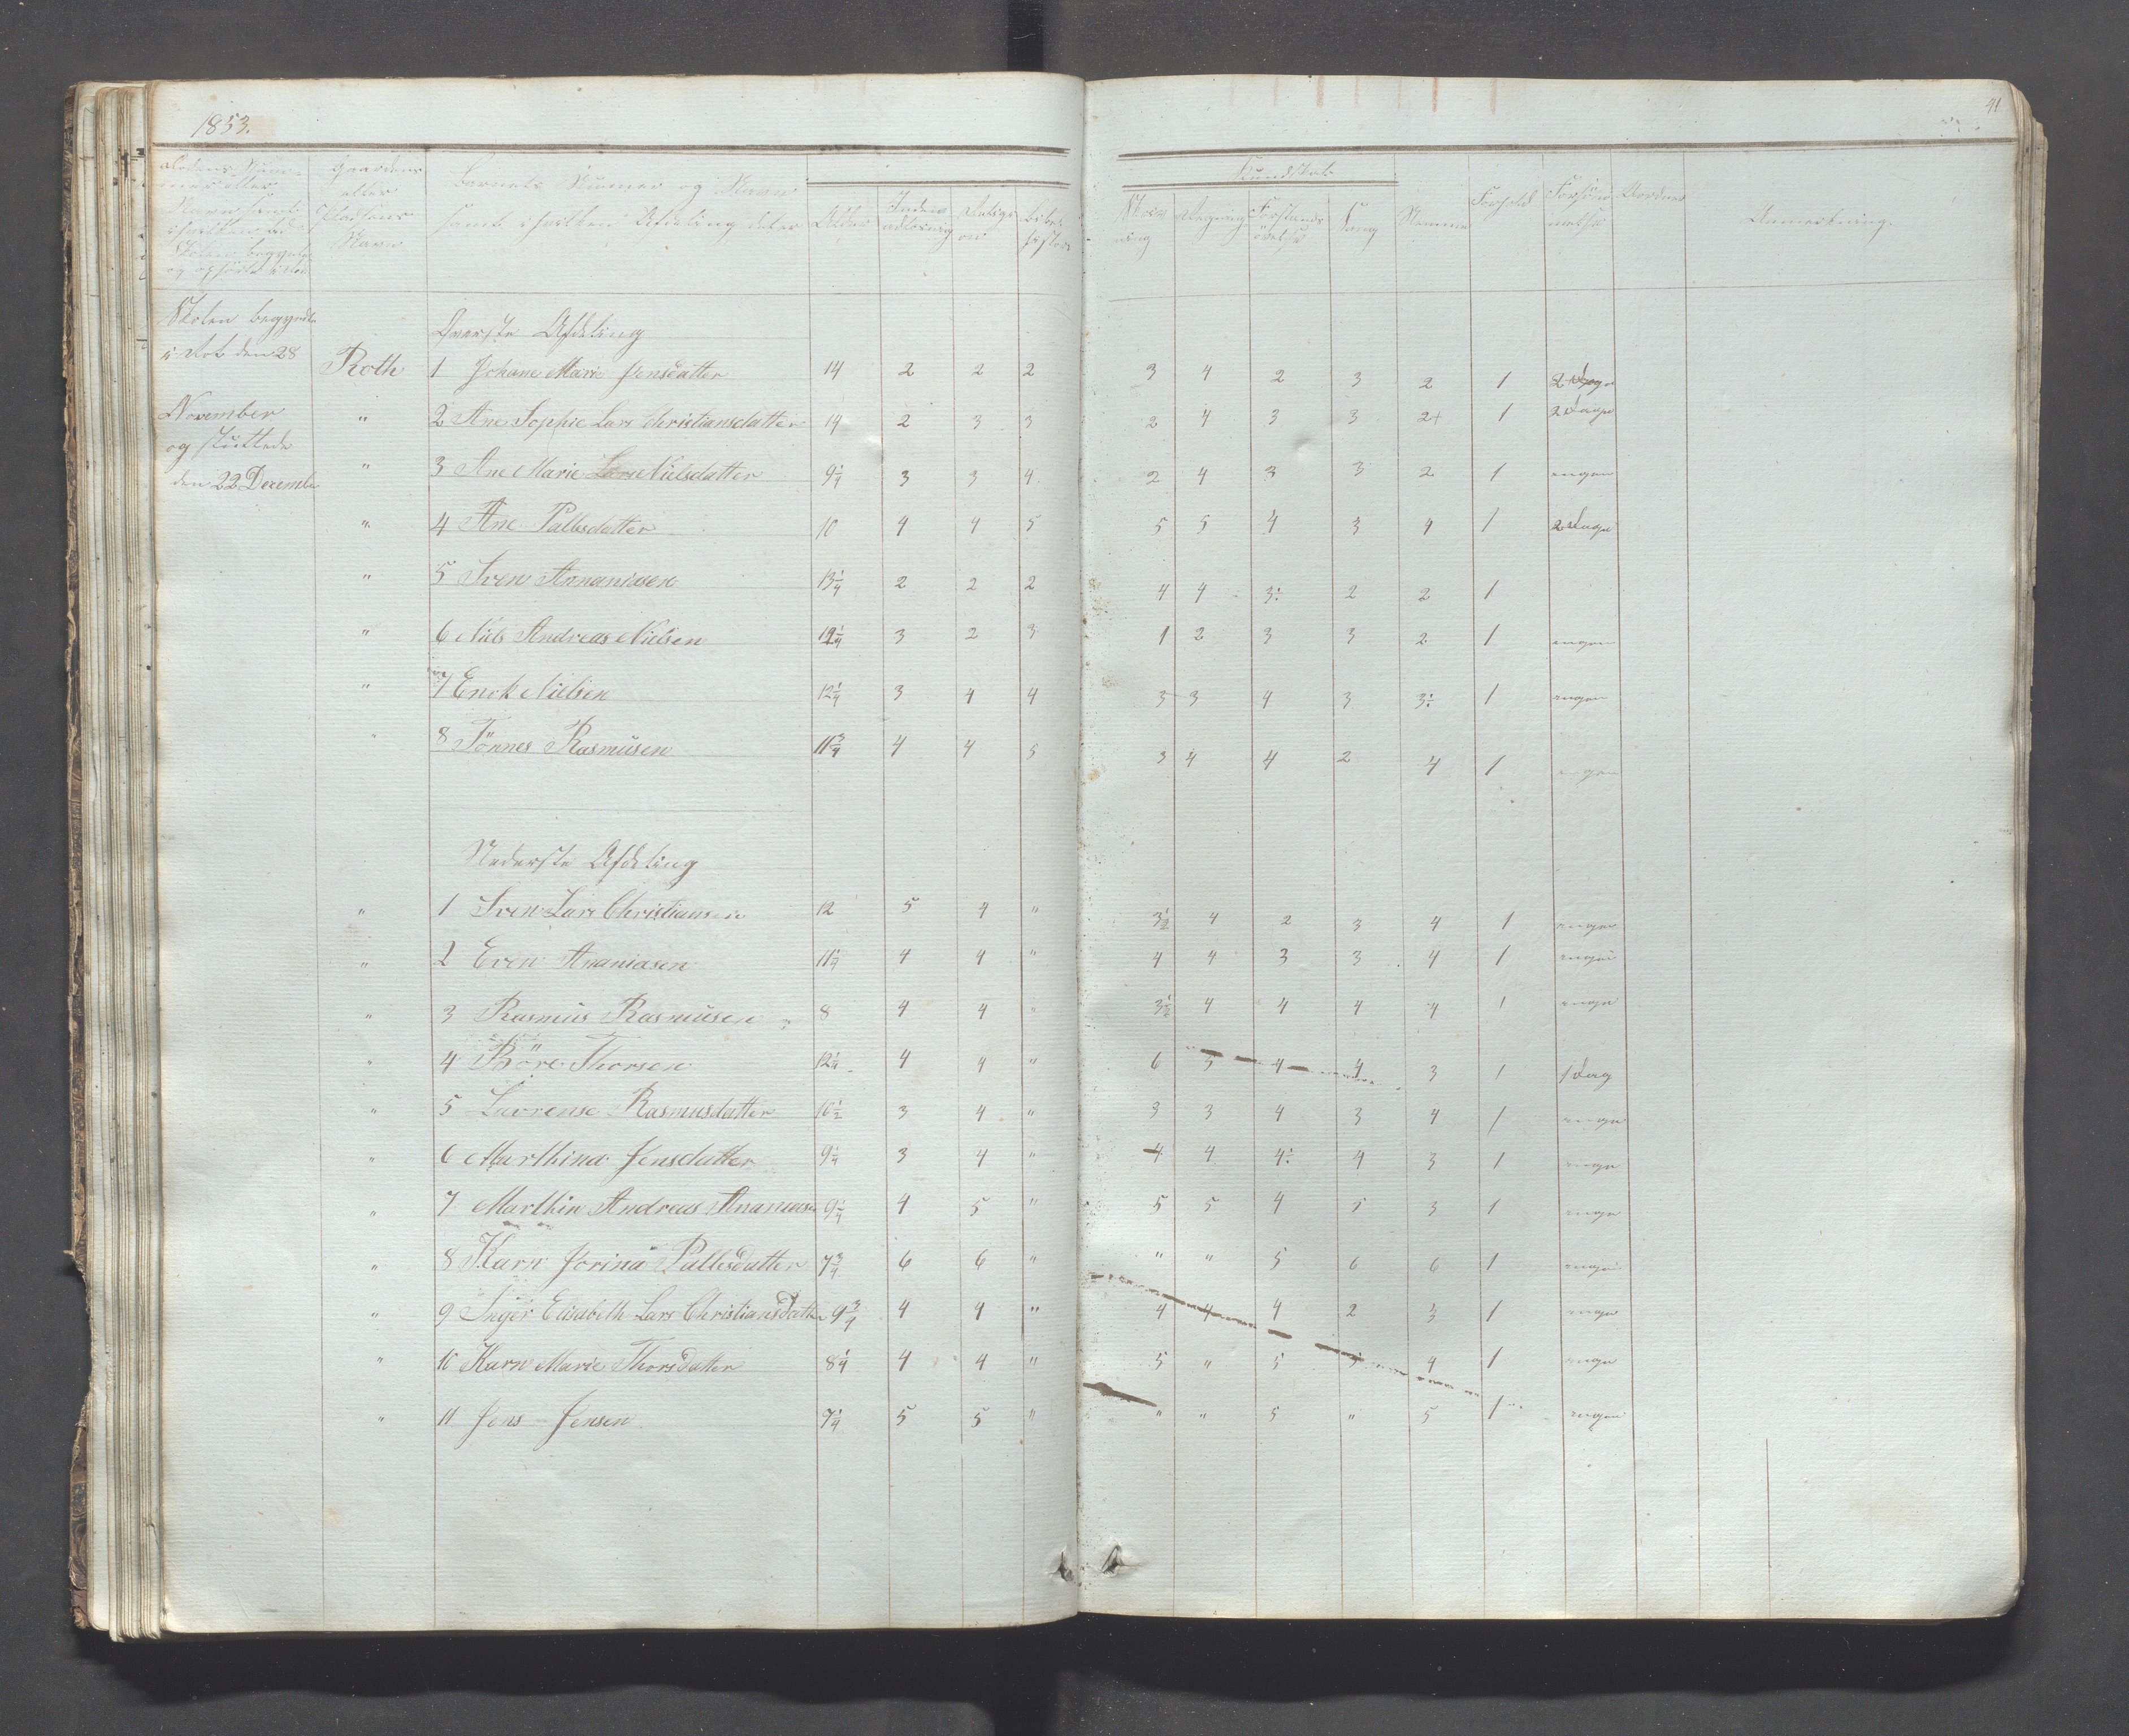 1853.
41
Rodens Nummer eller Navn samt hvilken Tid Skolen begyndte og opførte i den
Gaardens eller Pladsens Navn
Barnets Nummer og Navn samt i hvilken Afdeling det er
Alder
Inden adlæsning
Religion
Bibelhistorie
Kundskab
Skrivning
Regning
Forstandsøvelse
Sang
Nemme
Forhold
Forsømmelse
Anmerkning.
Skolen begyndte
i Rot den 28
November
og sluttede
den 22 December
Øverste Afdeling
Roth 1 Johane Marie Jensdatter 14 2 2 2 3 4 2 3 2 1 2 Dage
" 2 Ane Sophie Lars Christiansdatter 14 2 3 3 2 4 3 3 2+ 1 2 Dage
" 3 Ane Marie Lars Nielsdatter 9 1/4 3 3 4 2 4 3 3 2 1 ingen
" 4 Ane Pallesdatter 10 4 4 5 5 5 4 3 4 1 2 Dage
" 5 Sven Annaniasen 13 1/4 2 2 2 4 4 3÷ 2 2 1
" 6 Niels Andreas Nielsen 12 1/4 3 2 3 1 2 3 3 2 1 ingen
" 7 Enok Nielsen 12 1/4 3 4 4 3 3 4 3 3÷ 1 ingen
" 8 Tönnes Rasmusen 11 3/4 4 4 5 3 4 4 2 4 1 ingen
Nederste Afdeling
" 1 Sven Lars Christiansen 12 5 4 " 3 1/2 4 2 3 4 1 ingen
" 2 Even Ananiasen 11 1/4 4 4 " 4 4 3 3 4 1 ingen
" 3 Rasmus Rasmusen 8 4 4 " 3 1/2 4 4 4 4 1 inge
" 4 Böre Thorsen 12 1/4 4 4 " 6 5 4 4 3 1 1 Dag
" 5 Lavrense Rasmusdatter 10 1/2 3 4 " 3 3 4 3 4 1 inge
" 6 Marthina Jensdatter 9 1/4 3 4 " 4 4 4÷ 4 3 1 inge
" 7 Marthin Andreas Ananiasen 9 1/4 4 5 " 5 5 4 5 3 1 inge
" 8 Karn Jorina Pallesdatter 7 3/4 6 6 " " " 5 6 6 1 inge
" 9 Inger Elisabeth Lars Christiansdatter 9 3/4 4 4 " 4 4 4 2 3 1 inge
" 10 Karn Marie Thorsdatter 8 1/4 4 4 " 5 " 5 5 4 1 inge
" 11 Jens Jensen 7 1/4 5 5 " " " 5 " 5 1 ingen